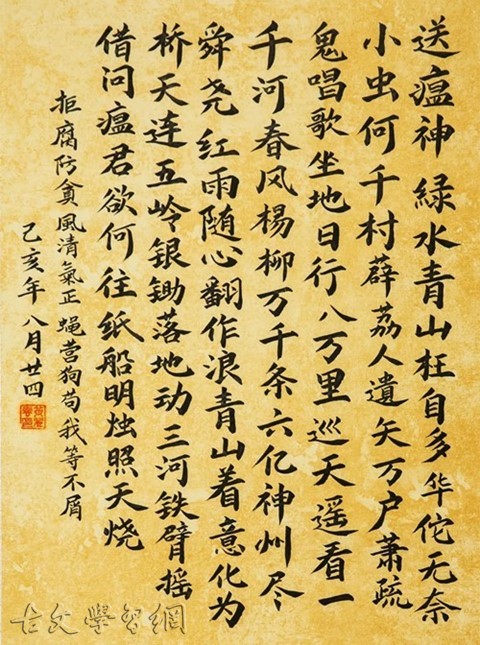 送瘟神 緑水青山枉自多华佗无奈
小虫何千村薜荔人遺矢万户萧疏
鬼唱歌坐地日行八万里巡天遥看一
千河春风楊柳万千条六亿神州尽
舜尧红雨随心翻作浪青山着意化为
桥天连五岭银锄落地动三河铁臂摇
借问瘟君欲何往纸船明烛照天烧
拒腐防貪風清氣正蝇营狗苟我等不屑
己亥年八月廿四
古文學習網